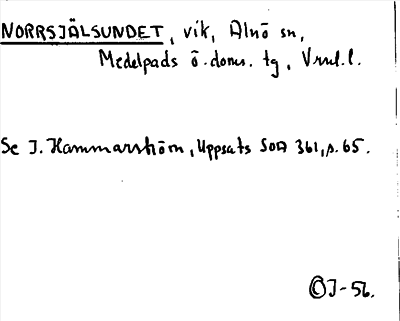 NORRSJÄLSUNDET, vik, Alnö sn,
Medelpads ö. doms. tg, Vrnl. l.
Se J. Hammarström, Uppsats SOA 361, s. 65.
ⒸJ-56.